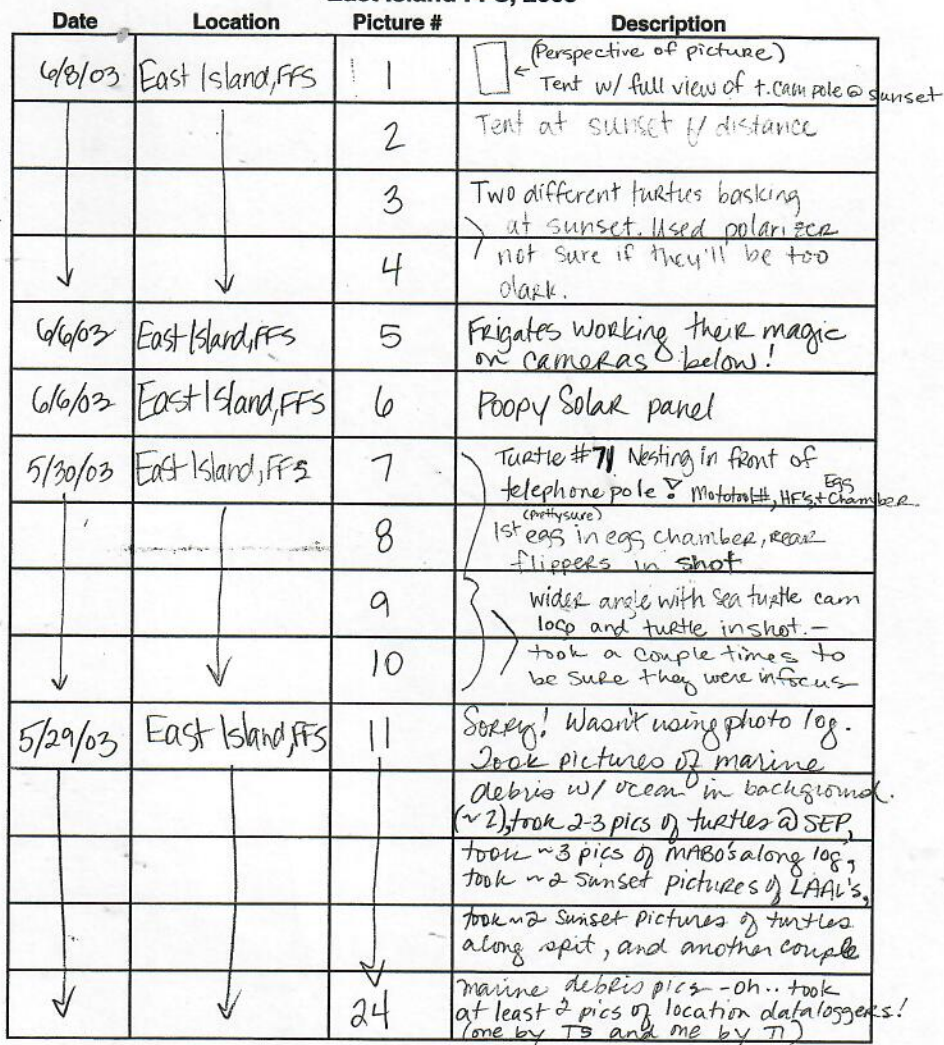 East Island FFS, 2003
Date Location Picture # Description
6/8/03 East Island, FFS 1 (Perspective of picture)
← Tent w/ full view of t.cam pole @ sunset
2 Tent at sunset f/ distance
3 Two different turtles basking
at sunset. Used polarizer
4 not sure if they'll be too
dark.
6/6/03 East Island, FFS 5 Frigates working their magic
on cameras below!
6/6/03 East Island, FFS 6 Poopy Solar panel
5/30/03 East Island, FFS 7 Turtle #71 Nesting in front of
telephone pole Mototool#, HF's, + Egg Chamber
8 1st (pretty sure) egg in egg chamber, rear
flippers in shot
9 wider angle with sea turtle cam
logo and turtle in shot. -
10 took a couple times to
be sure they were in focus
5/29/03 East Island, FFS 11 Sorry! Wasn't using photo log.
Took pictures of marine
debris w/ ocean in background.
(~2), took 2-3 pics of turtles @ SEP,
took ~3 pics of MABO's along log,
took ~2 sunset pictures of LAAL's,
took ~2 sunset pictures of turtles
along spit, and another couple
marine debris pics - oh.. took
24 at least 2 pics of location dataloggers!
(one by T5 and one by T1)